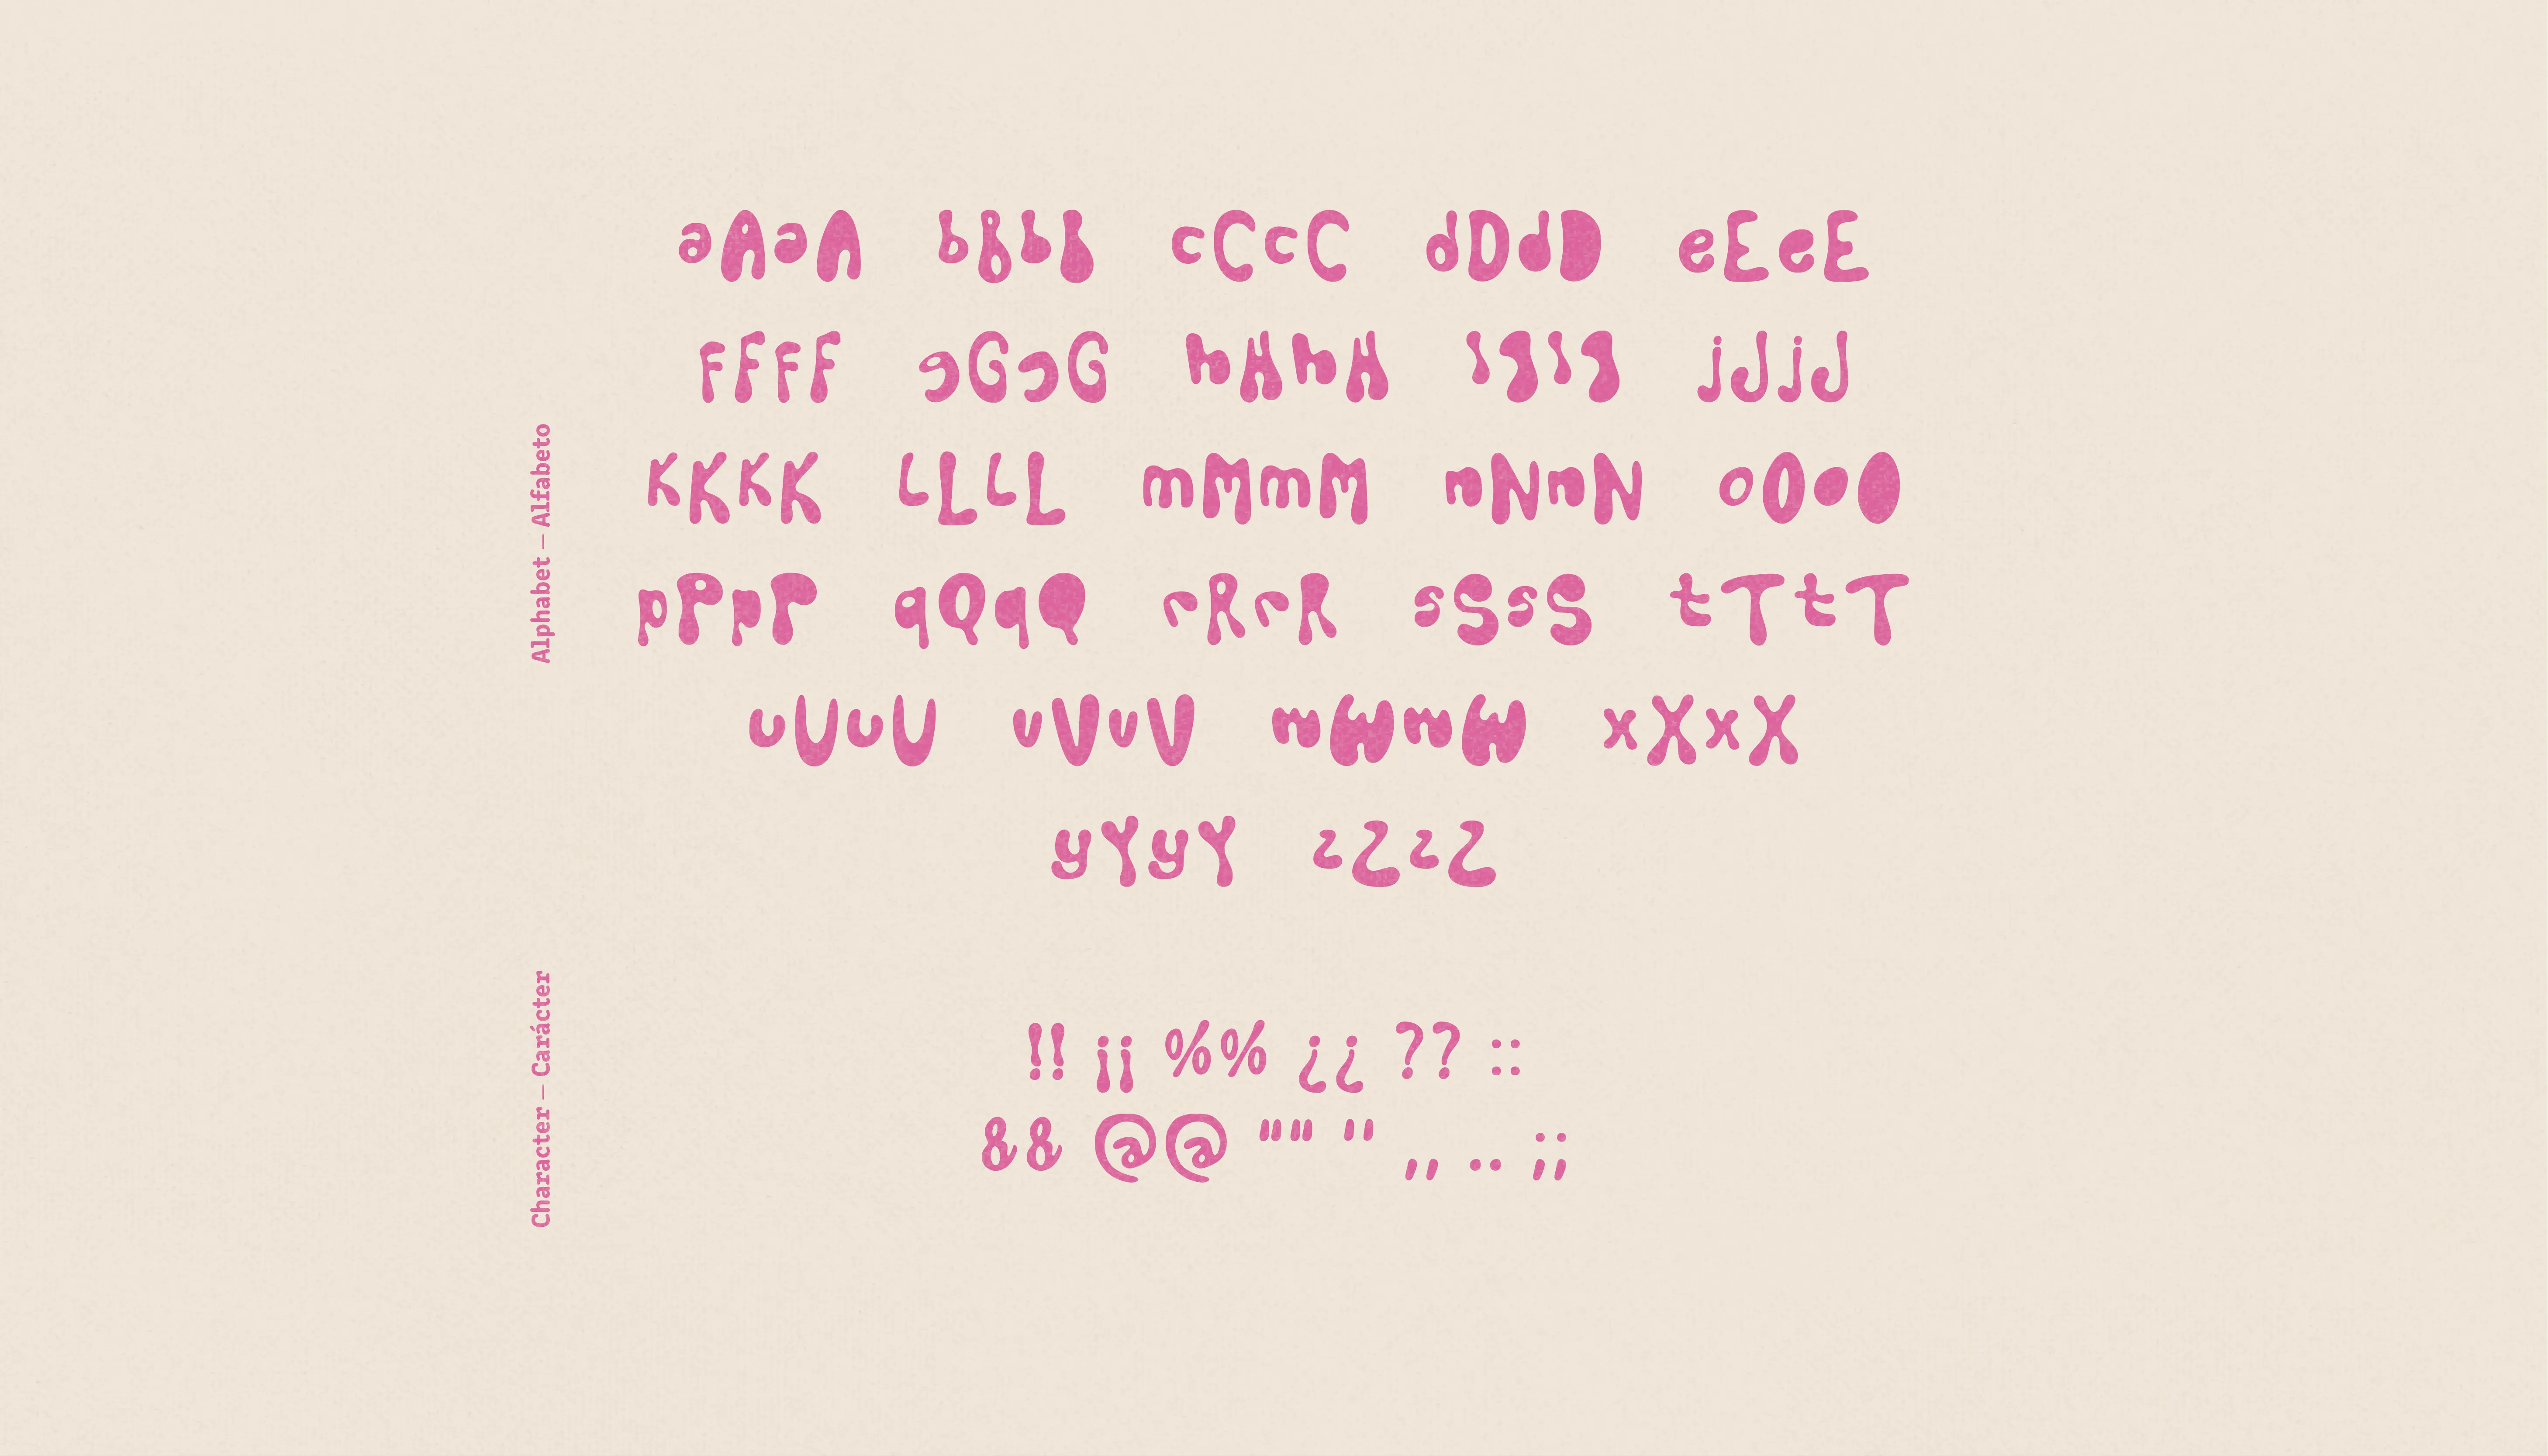 Alphabet — Alfabeto
aAaA bBbB cCcC dDdD eEeE
fFfF gGgG hHhH iIiI jJjJ
kKkK lLlL mMmM nNnN oOoO
pPpP qQqQ rRrR sSsS tTtT
uUuU vVvV wWwW xXxX
yYyY zZzZ
Character — Carácter
!! ¡¡ %% ¿¿ ?? ::
&& @@ "" '' ,, .. ;;